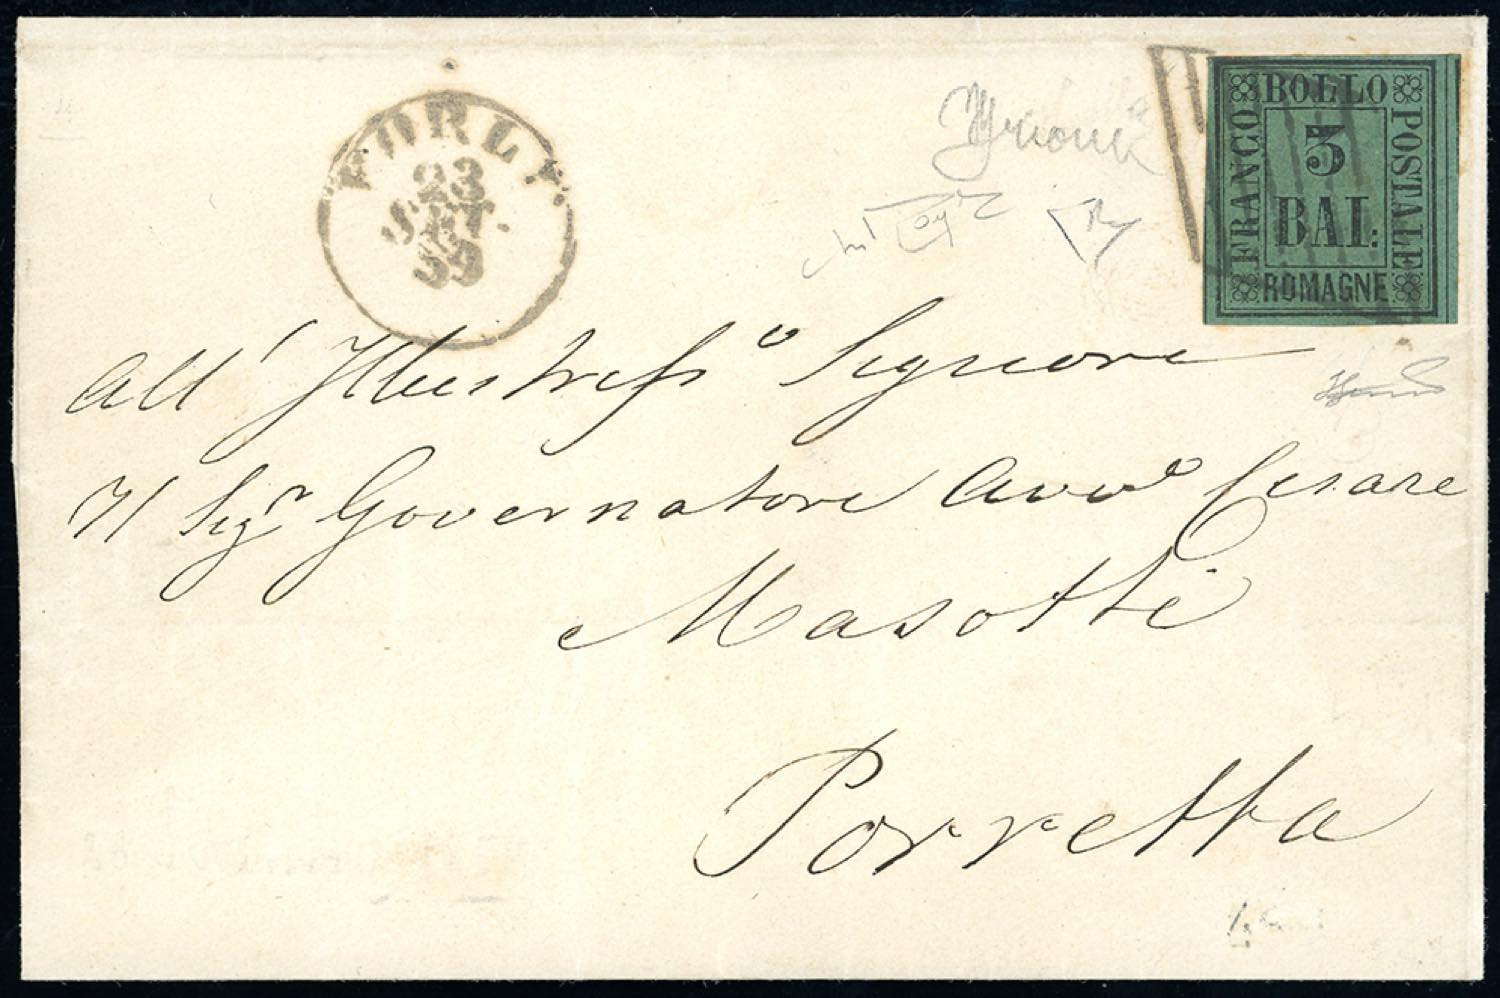 FORLY
23
SET.
59
BOLLO
FRANCO
POSTALE
3
BAI:
ROMAGNE
All' Illustress.o Signore
Il Sig.r Governatore Avv.o Cesare
Masotti
Porretta